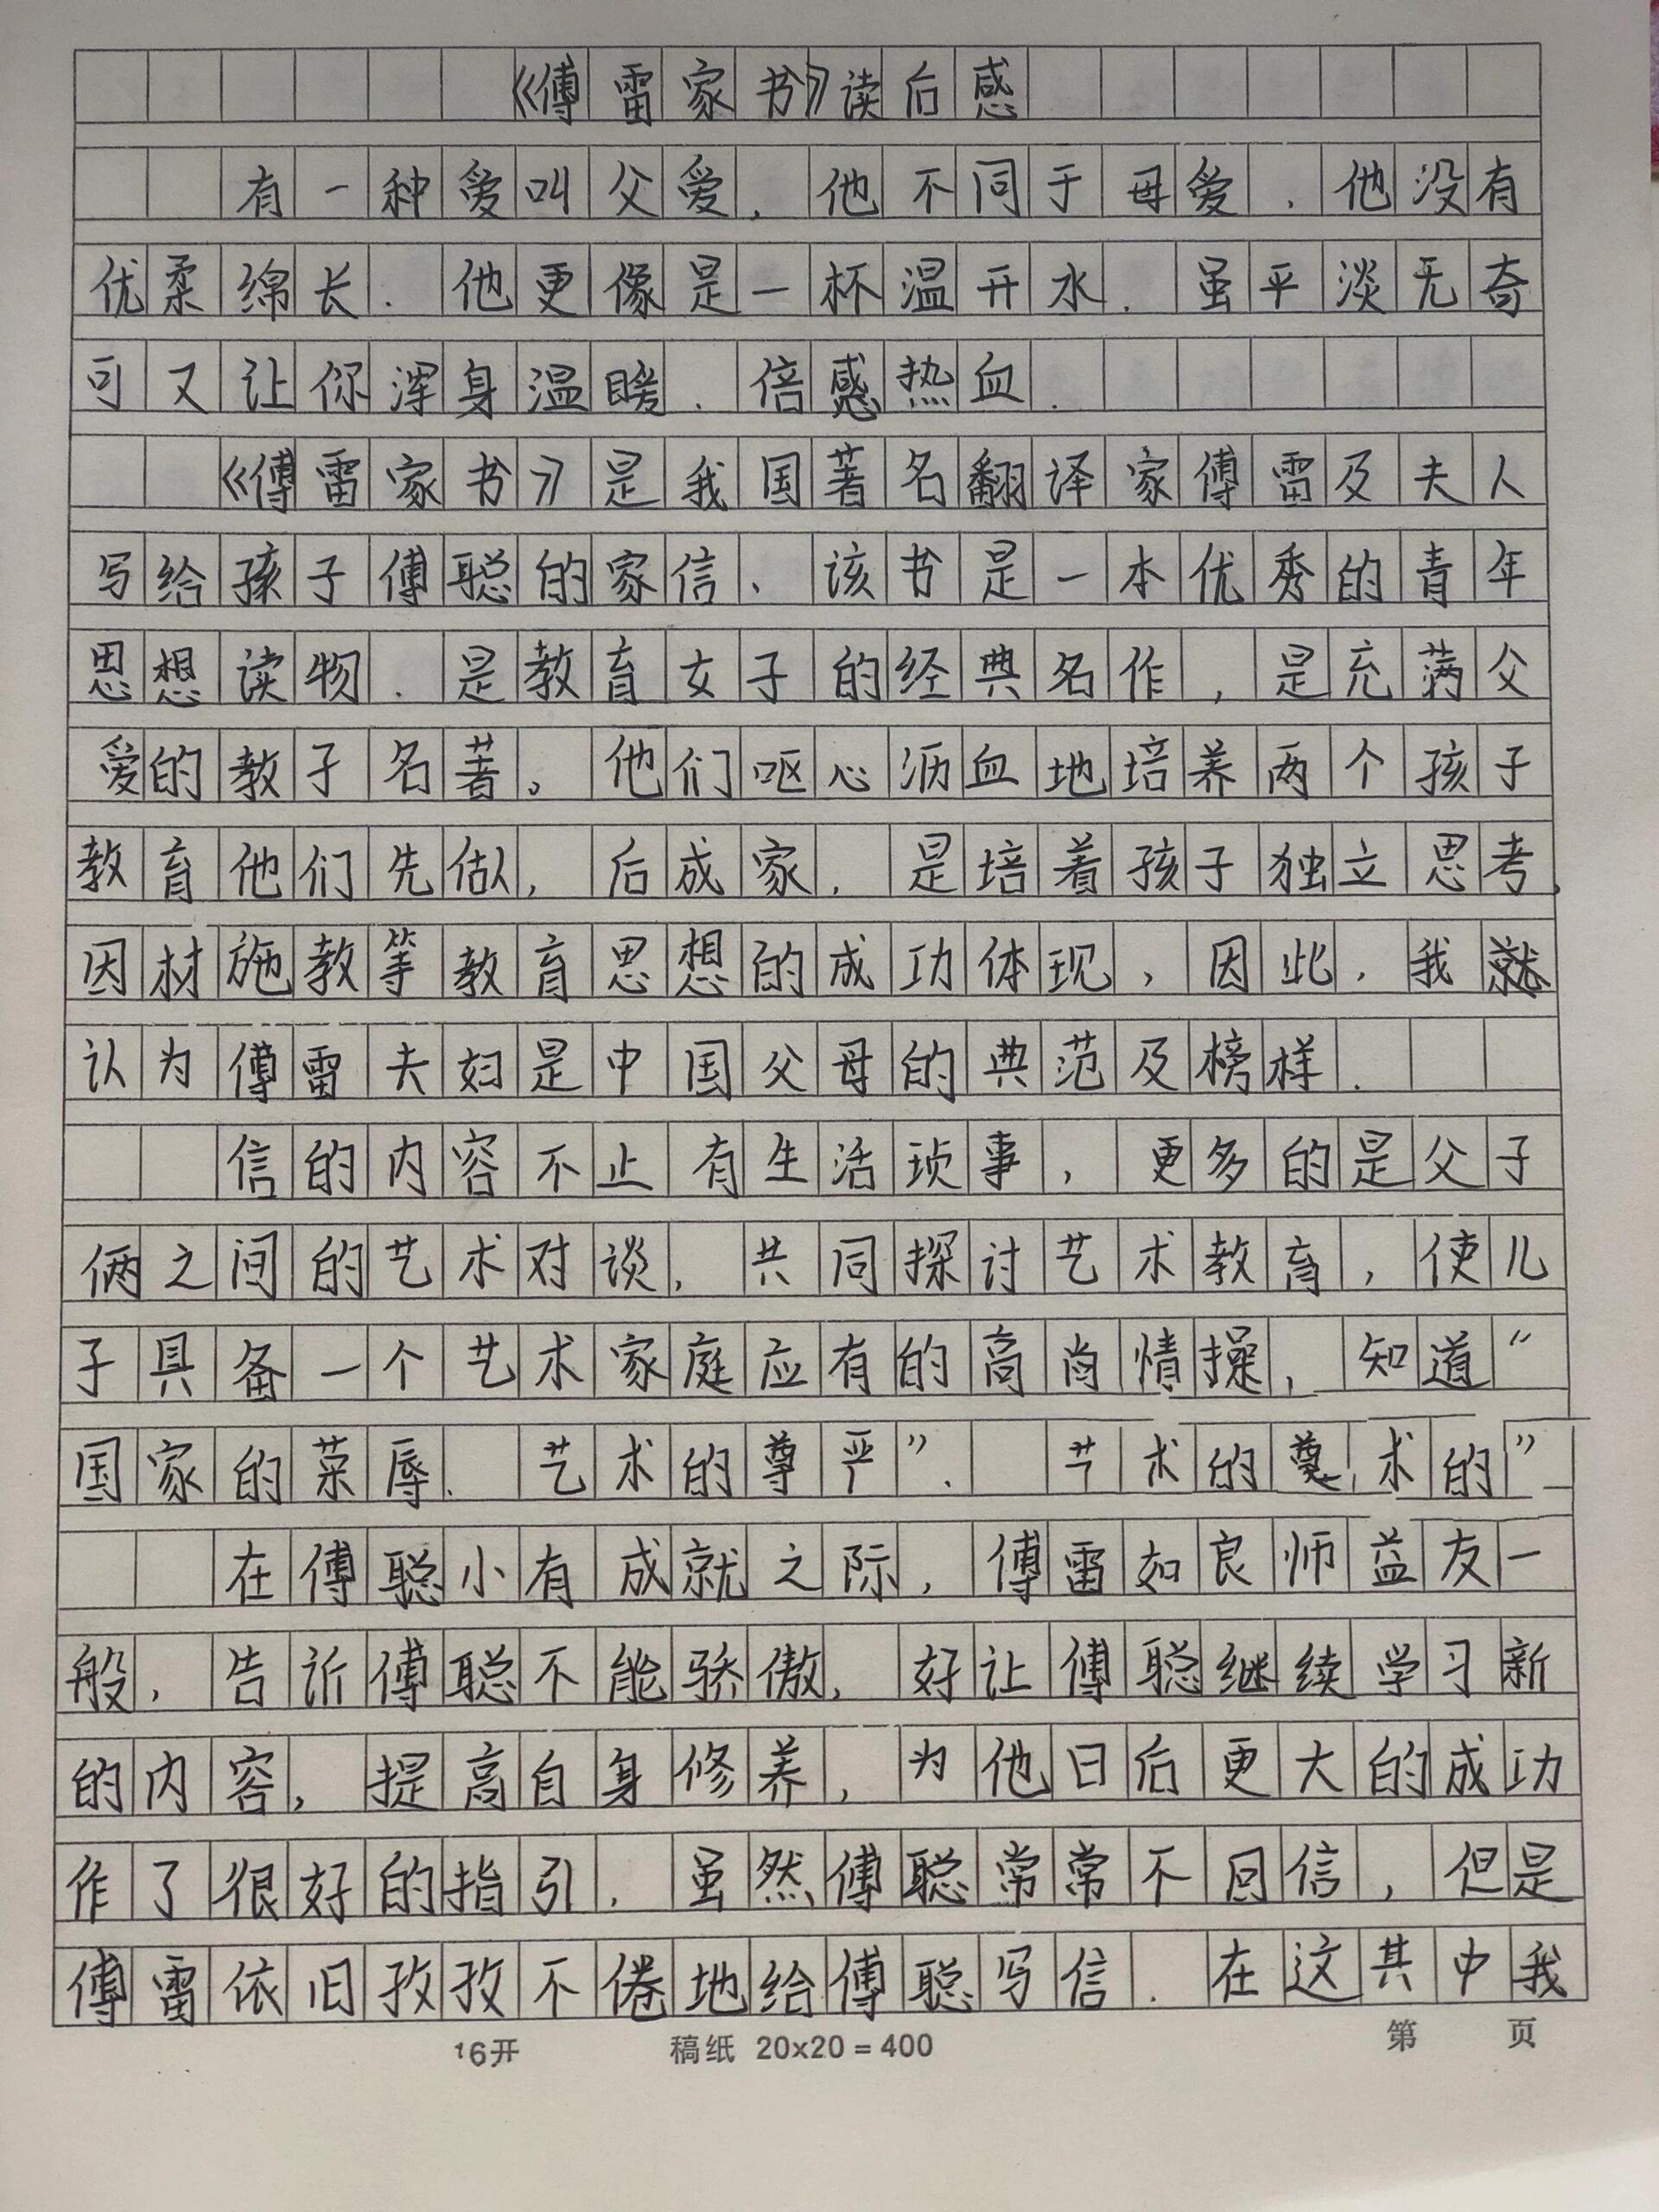 《傅雷家书》读后感
有一种爱叫父爱，他不同于母爱．他没有
优柔绵长．他更像是一杯温开水．虽平淡无奇
可又让你浑身温暖．倍感热血．
《傅雷家书》是我国著名翻译家傅雷及夫人
写给孩子傅聪的家信、该书是一本优秀的青年
思想读物．是教育女子的经典名作，是充满父
爱的教子名著。他们呕心沥血地培养两个孩子
教育他们先做，后成家．是培着孩子独立思考，
因材施教等教育思想的成功体现，因此，我就
认为傅雷夫妇是中国父母的典范及榜样．
信的内容不止有生活琐事，更多的是父子
俩之间的艺术对谈，共同探讨艺术教育，使儿
子具备一个艺术家庭应有的高尚情操，知道“
国家的荣辱．艺术的尊严”．艺术的尊术的”
在傅聪小有成就之际，傅雷如良师益友一
般，告诉傅聪不能骄傲，好让傅聪继续学习新
的内容，提高自身修养，为他日后更大的成功
作了很好的指引．虽然傅聪常常不回信，但是
傅雷依旧孜孜不倦地给傅聪写信．在这其中我
16开 稿纸 20x20=400 第 页